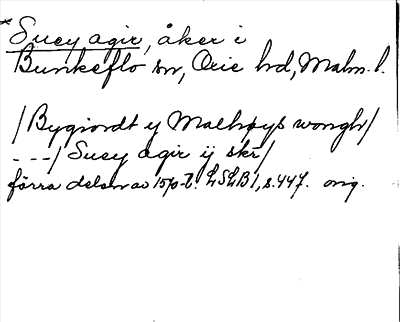 *Suey agir, åker i
Bunkeflo sn, Oxie hd, Malm. l.
/Bygiordt y Malhøys wongh/
---/Suey agir ij skr/
förra delen av 1570-t. LSLB 1, s. 447. orig.